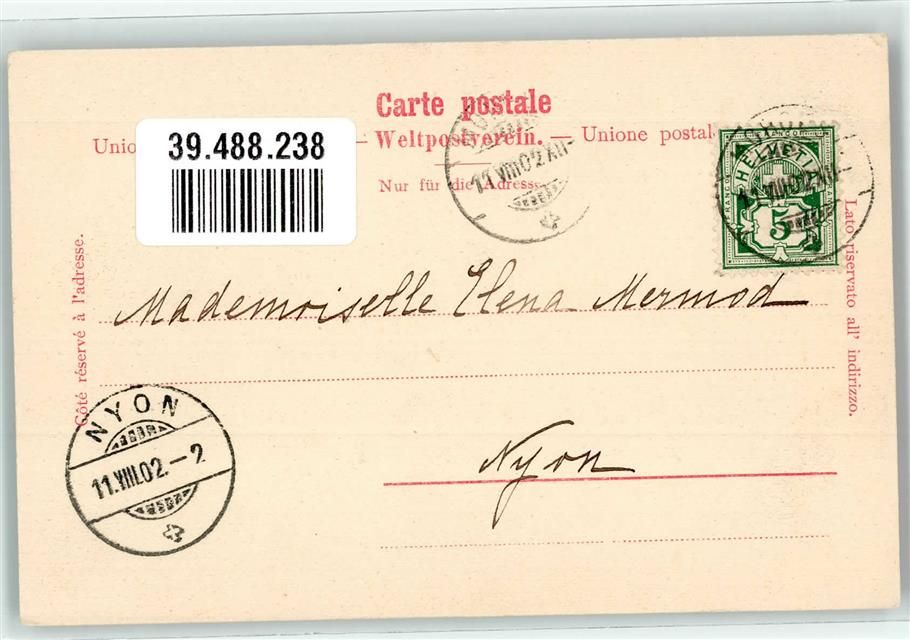 Carte postale
39.488.238
Unio
— Weltpostverein. — Unione postal
Nur für die Adresse
11.VIII.02.XII-
HELVETIA
FRANCO
5
11.VIII.02.XII-
Mademoiselle Elena Mermod
Nyon
Côté réservé à l'adresse.
Lato riservato all' indirizzo.
NYON
11.VIII.02.-2